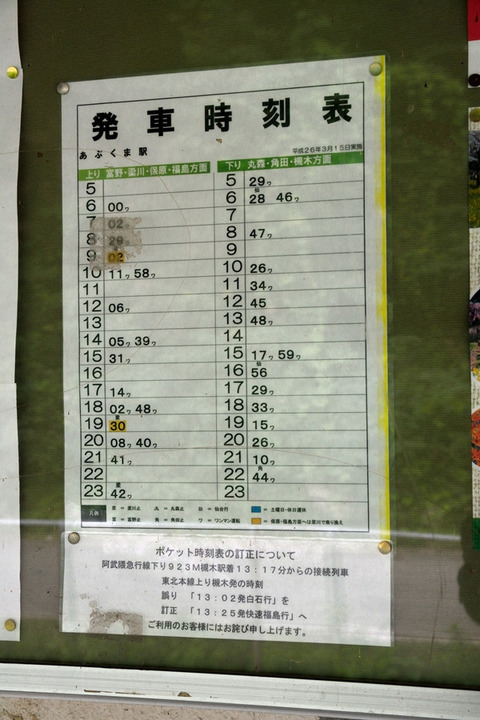 発車時刻表
あぶくま駅
平成26年3月15日実施
上り 富野・梁川・保原・福島方面 下り 丸森・角田・槻木方面
5 5 29ワ
6 00ワ 6 仙28 46ワ
7 02ワ 7
8 29ワ 8 47ワ
9 02 9
10 11ワ 58ワ 10 26ワ
11 11 34ワ
12 06ワ 12 45
13 13 48ワ
14 05ワ 39ワ 14
15 31ワ 15 17ワ 59ワ
16 16 仙56
17 14ワ 17 29ワ
18 02ワ 48ワ 18 33ワ
19 30 19 15ワ
20 08ワ 40ワ 20 26ワ
21 41ワ 21 10ワ
22 22 角44ワ
23 42ワ 23
凡例 梁 = 梁川止 丸 = 丸森止 仙 = 仙台行 = 土曜日・休日運休
富 = 富野止 角 = 角田止 ワ = ワンマン運転 = 保原・福島方面へは梁川で乗り換え
ポケット時刻表の訂正について
阿武隈急行線下り923M槻木駅着13:17分からの接続列車
東北本線上り槻木発の時刻
誤り 「13:02発白石行」を
訂正 「13:25発快速福島行」へ
ご利用のお客様にはお詫び申し上げます。